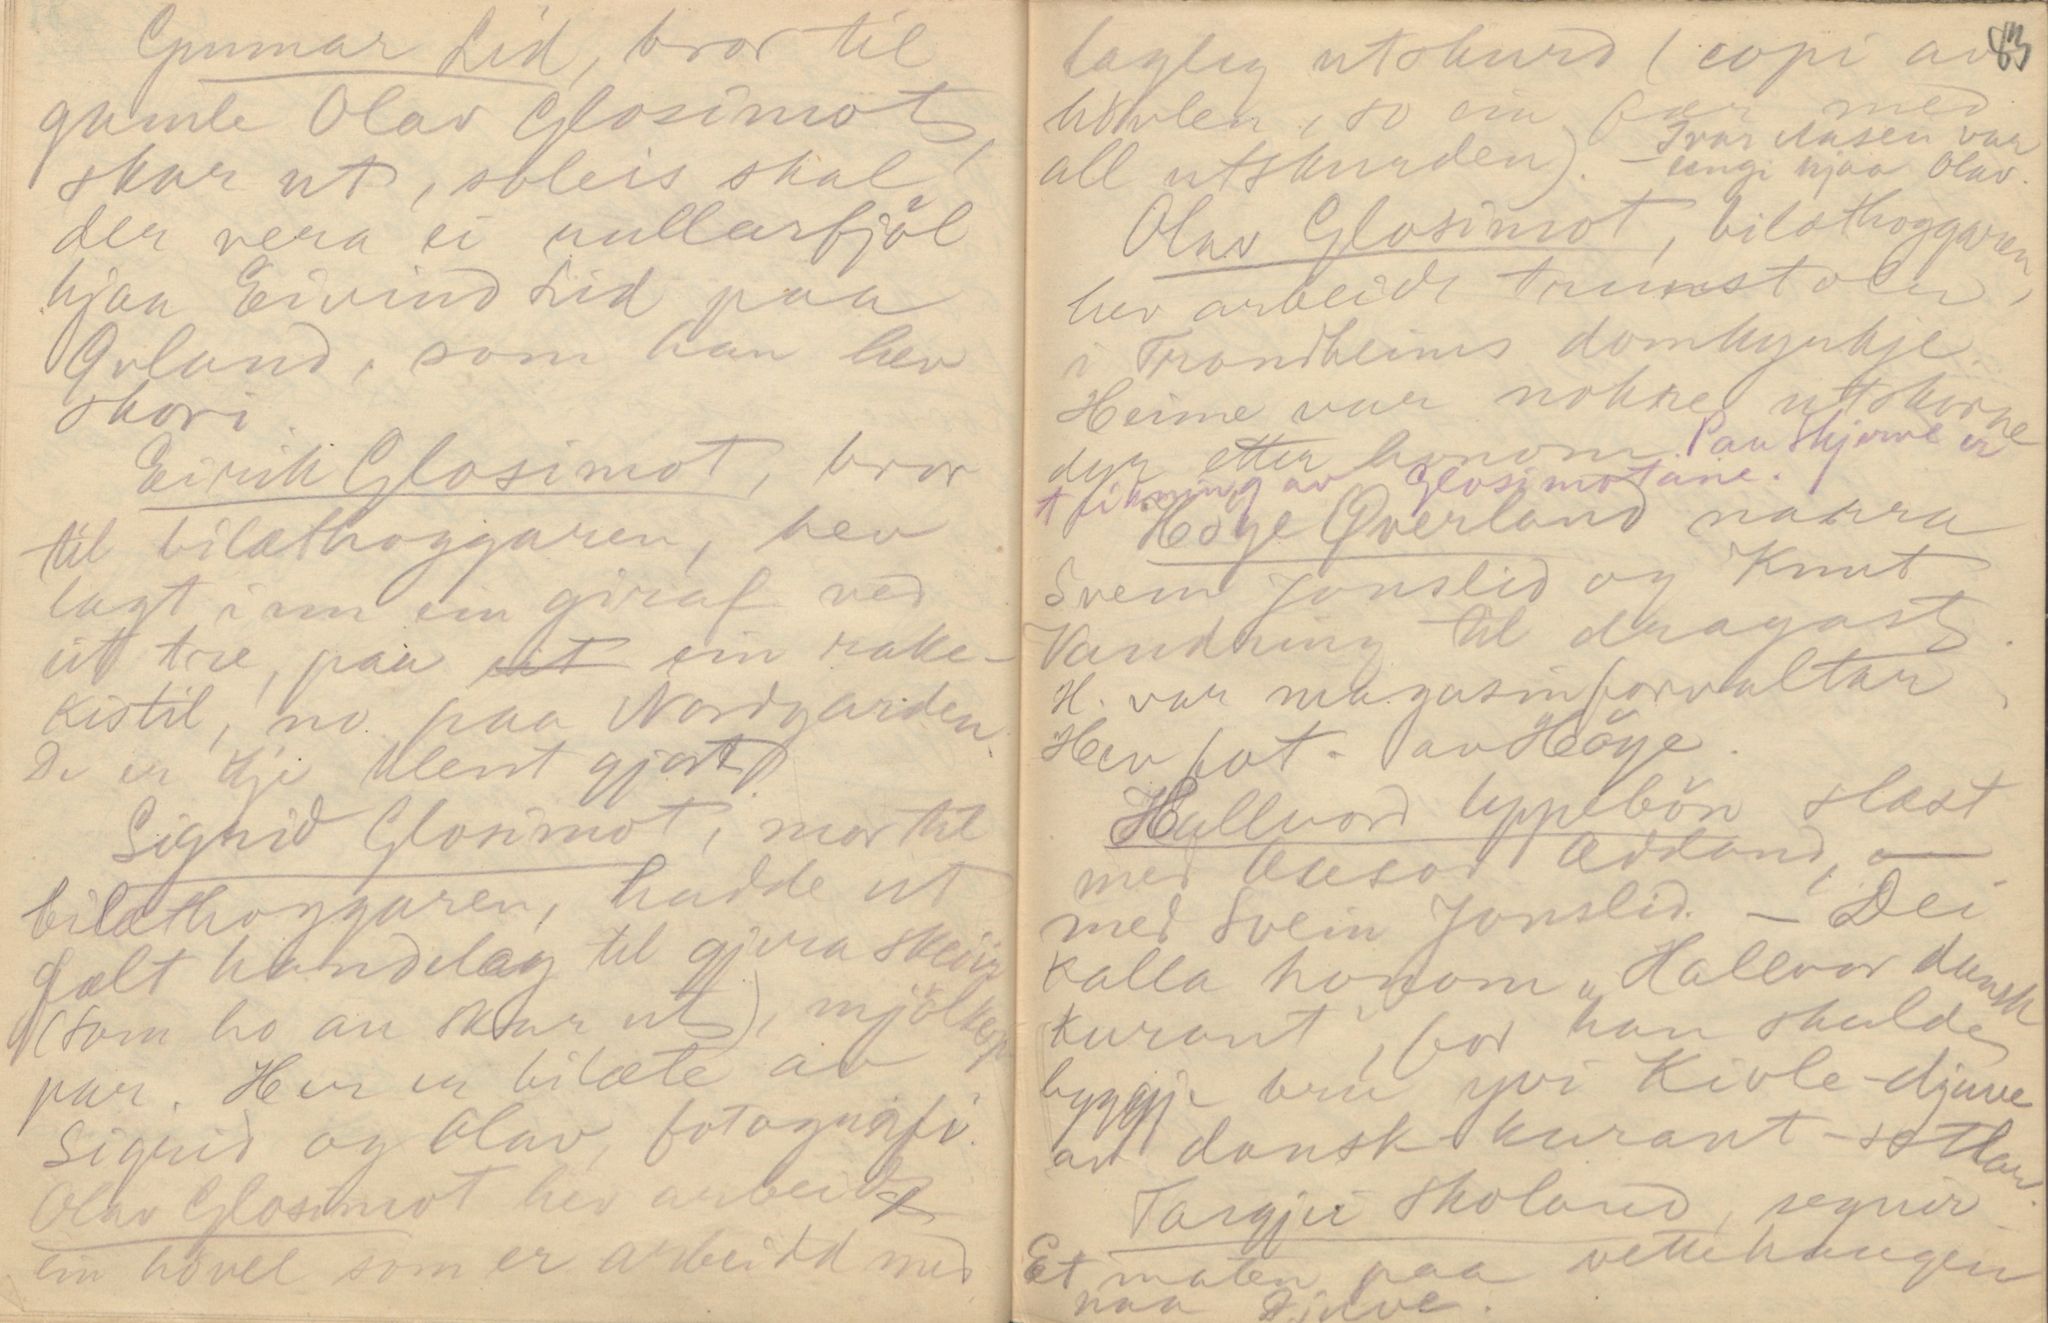 Gunnar Lid, bror til
gamle Olav Glosimot,
skar ut, soleis skal
der vera ei rullarfjöl
hjaa Eivind Lid paa
Ørland, som han hev
skori.
Eirik Glosimot, bror
til bilæthoggaren, hev
lagt inn ein giraf ved
eit tre, paa eit ein rake-
kistil, no paa Nordgarden.
De er kje klent gjort.
Sigrid Glosimot, mor til
bilæthoggaren, hadde eit
gælt handelag til gjera skeier
(som ho au skar ut), mjölkep
par. Her er bilæte av
Sigrid og Olav, fotografi.
Olav Glosimot hev arbeidt
ein hövel som er arbeidd med
83
lagleg utskurd (copi av
hövlen, so ein fær med
all utskurden). – Ivar Aasen var
eingi hjaa Olav.
Olav Glosimot, bilæthoggaren,
hev arbeidt trunstolen
i Trondheims domkyrkje.
Heime var nokre utskorne
dyr etter honom. Paa Skjerve er
teikning av Glosimotane.
Höge Øverland narra
Svein Jonslid og Knut
Vandring til dragast.
H. var magasinforvaltar.
Hev fot. av Höge.
Hallvord Uppebön slæst
med Aasod Øddand, o
med Svein Jonslid. – Dei
kalla honom „Hallvor dansk
kurant", for han skulde
byggje bru yvi Kivle-djuve
av dansk-kurant-setlar.
Targjei Skoland, segner
Et maten paa vettehaugen
paa Djuve.